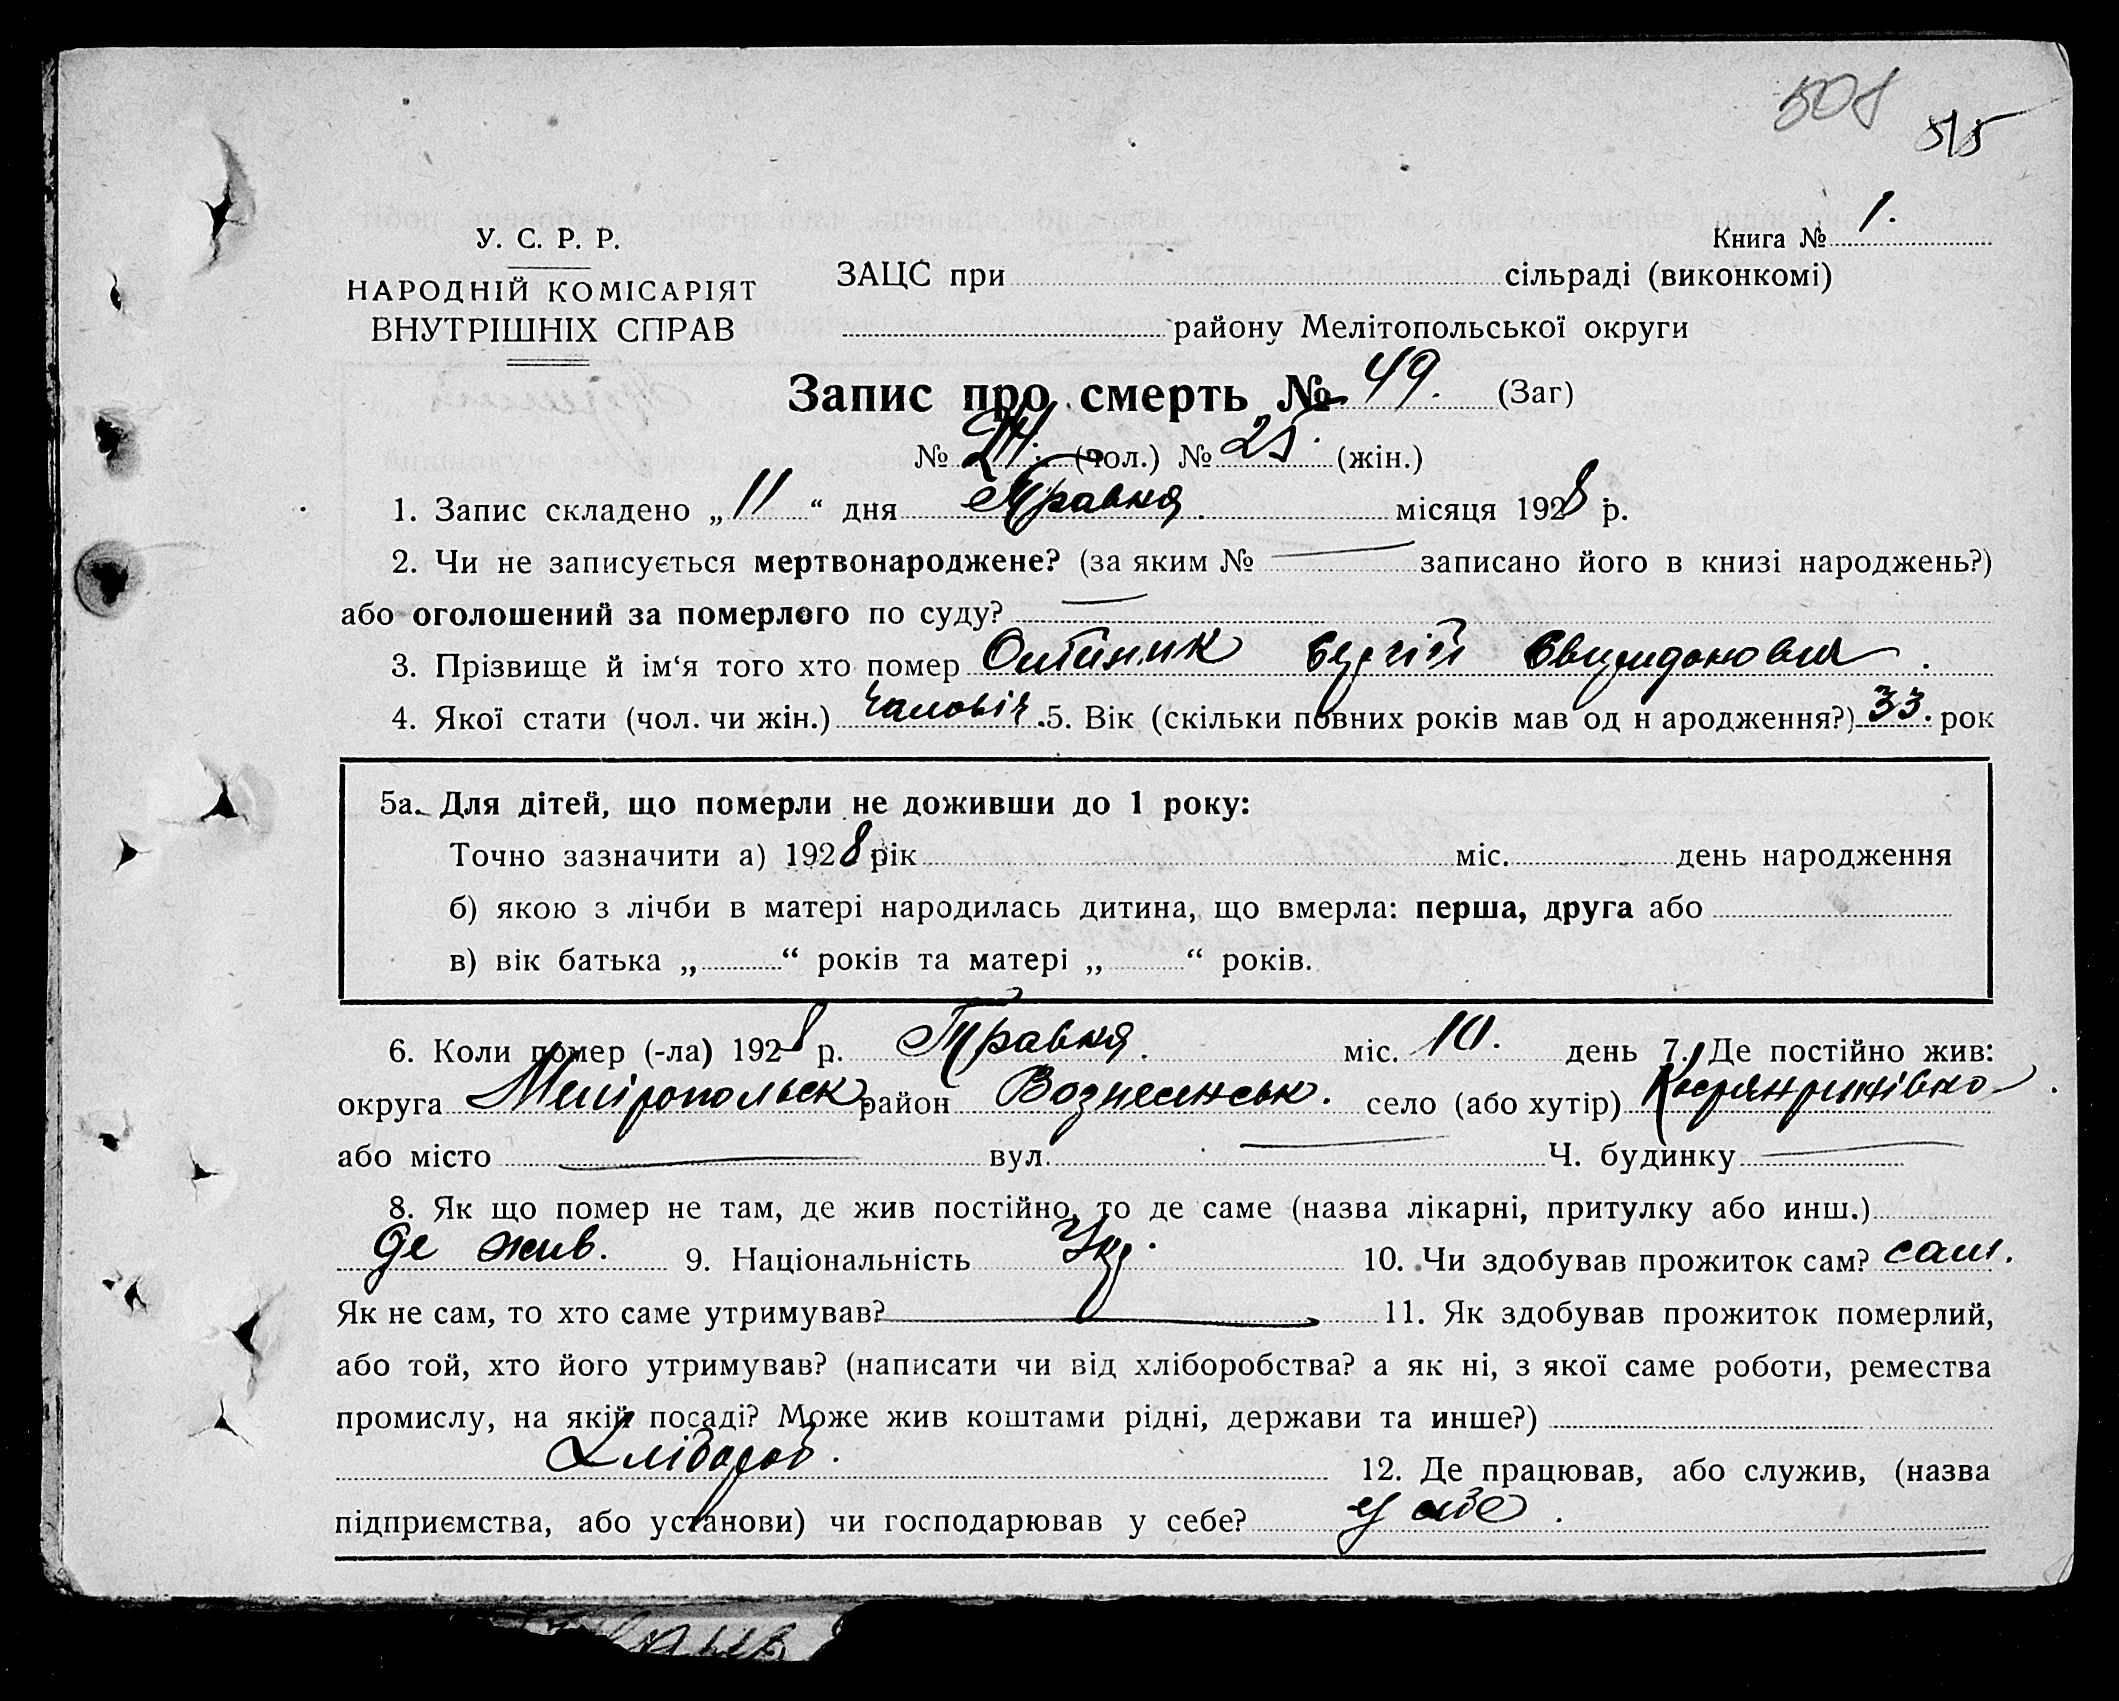 508
515
У. С. Р. Р.
Книга № 1.
НАРОДНІЙ КОМІСАРІЯТ
ВНУТРІШНІХ СПРАВ
ЗАЦС при сільраді (виконкомі)
району Мелітопольської округи
Запис про смерть № 49. (Заг)
№ 24. (чол.) № 25. (жін.)
1. Запис складено „11“ дня Травня. місяця 1928 р.
2. Чи не записується мертвонароджене? (за яким № — записано його в книзі народжень?)
або оголошений за померлого по суду? —
3. Прізвище й ім‘я того хто помер Сергій
4. Якої стати (чол. чи жін.) чаловіч. 5. Вік (скільки повних років мав од н ародження?) 33. рок
5а. Для дітей, що померли не доживши до 1 року:
Точно зазначити а) 1928 рік міс. день народження
б) якою з лічби в матері народилась дитина, що вмерла: перша, друга або
в) вік батька „ “ років та матері „ “ років.
6. Коли помер (-ла) 1928 р. Травня. міс. 10. день 7. Де постійно жив:
округа Мелітопольск район Вознесенськ. село (або хутір)
або місто — вул. — Ч. будинку —
8. Як що помер не там, де жив постійно, то де саме (назва лікарні, притулку або инш.)
де жив. 9. Національність Укр. 10. Чи здобував прожиток сам? сам.
Як не сам, то хто саме утримував? — 11. Як здобував прожиток померлий,
або той, хто його утримував? (написати чи від хліборобства? а як ні, з якої саме роботи, ремества
промислу, на якій посаді? Може жив коштами рідні, держави та инше?)
Хлібороб. 12. Де працював, або служив, (назва
підприємства, або установи) чи господарював у себе? у себе.